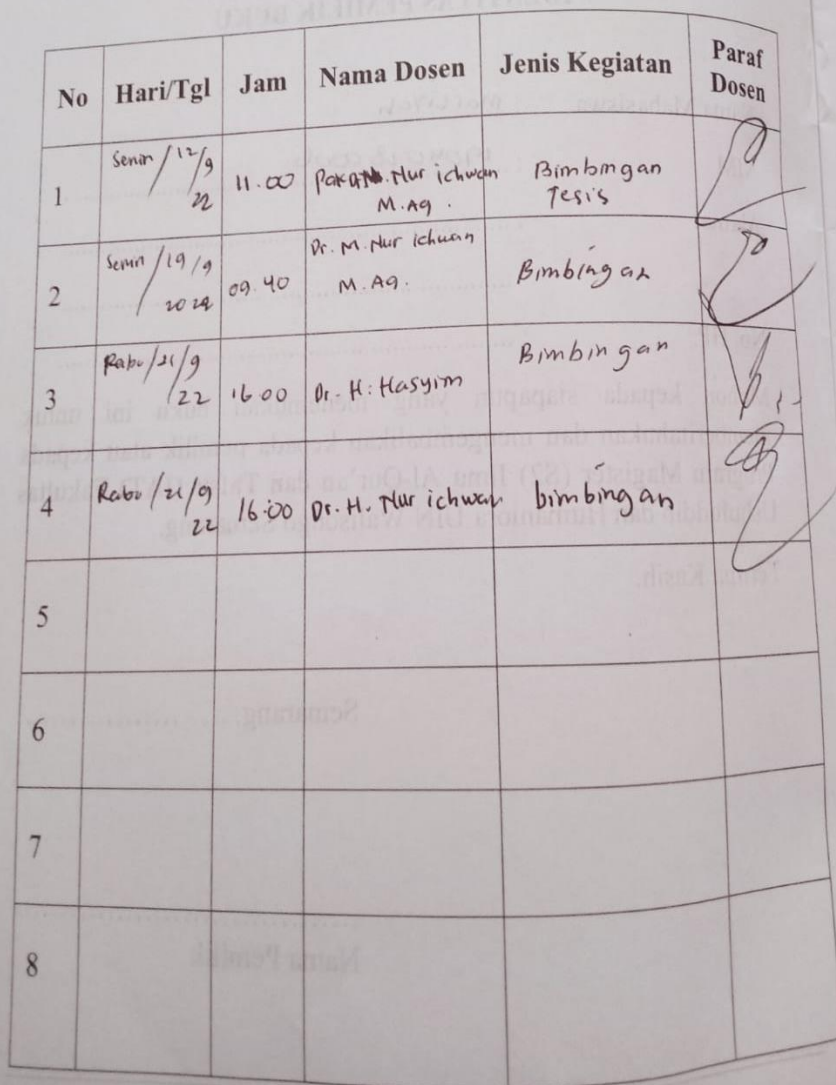 No Hari/Tgl Jam Nama Dosen Jenis Kegiatan Paraf Dosen
1 Senin / 12/9 22 11.00 Nur ichwan M.Ag. Bimbingan Tesis
2 Senin / 19/9 09.40 Dr. M. Nur Ichwan M.Ag. Bimbingan
3 Rabu / 21/9 22 16.00 Dr. H. Hasyim Bimbingan
4 Rabu / 21/9 22 16.00 Dr. H. Nur ichwan bimbingan
5
6
7
8